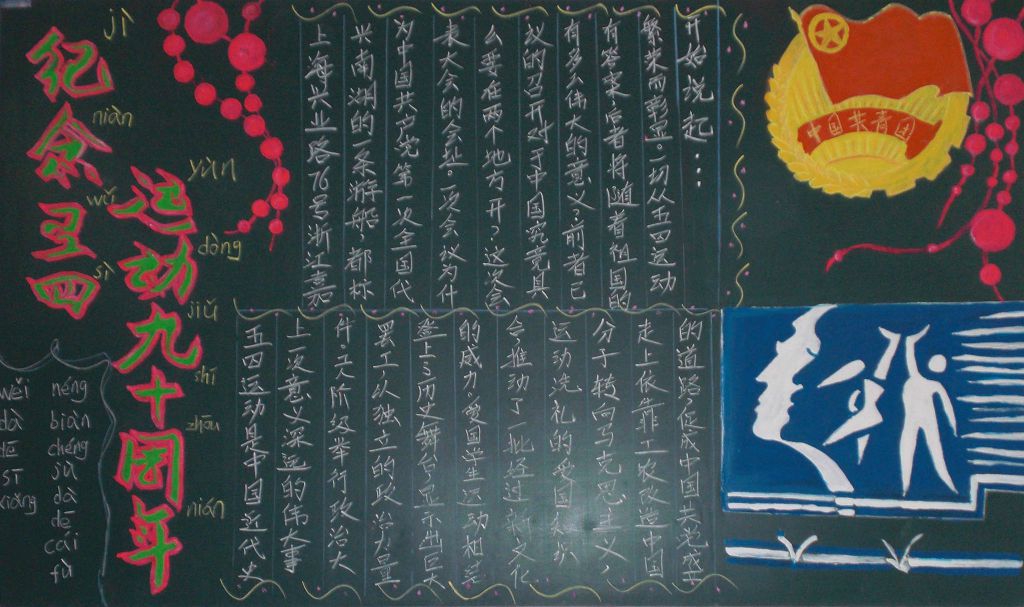 纪念五四
jì
niàn
wǔ
sì
运动九十周年
yùn
dòng
jiǔ
shí
zhōu
nián
wěi
dà
sī
xiǎng
néng
biàn
chéng
dà
dē
cái
fù
上海兴业路76号浙江嘉
兴南湖的一条游船,都标
为中国共产党第一次全国代
表大会的会址。一次会议为什
么要在两个地方开？这次会
议的召开对于中国究竟具
有多么伟大的意义？前者已
有答案,后者将随着祖国的
繁荣而彰显。一切从五四运动
开始说起...
五四运动是中国近代史
上一次意义深远的伟大事
件,工人阶级举行政治大
罢工以独立的政治力量
登上了历史舞台,显示出巨大
的威力,爱国学生运动相结
合,推动了一批经过新文化
运动洗礼的爱国知识
分子转向马克思主义,
走上依靠工农改造中国
的道路促成中国共
中国共青团